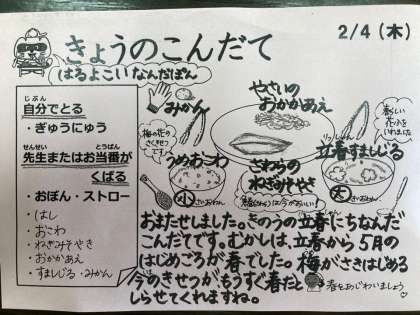 2/4(木)
きょうのこんだて
はるよこいなんだぽん
じぶん
自分でとる
・ぎゅうにゅう
せんせい とうばん
先生またはお当番が
くばる
・おぼん・ストロー
・はし
・おこわ
・ねぎみそやき
・おかかあえ
・すましじる・みかん
みかん
やさいの
おかかあえ
梅の花の
さくきせつ
です。
うめおこわ
小
さわらの
ねぎみそやき
りっしゅん
立春すましじる
大
おまたせしました。きのうの立春にちなんだ
こんだてです。むかしは、立春から5月の
はじめごろが春でした。梅がさきはじめる
今のきせつがもうすぐ春だと
しらせてくれますね。
春をあじわいましょう